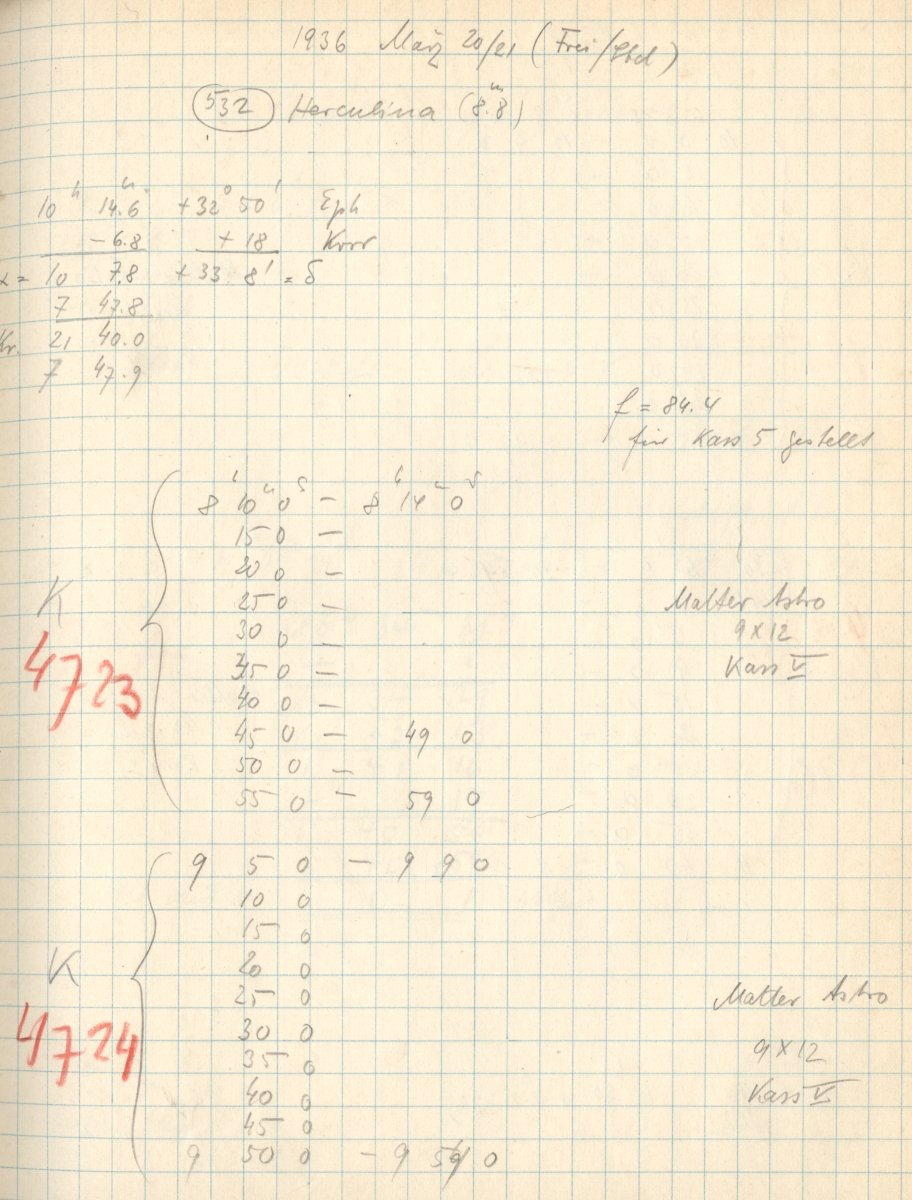 1936 März 20/21 (Frei/Sbd)
532 Herculina (8.8ᵐ)
10ʰ 14.6ᵐ +32° 50' Eph
-6.8 +18 Korr
α = 10 7.8 +33 8' = δ
7 47.8
Kr. 21 40.0
7 47.9
f = 84.4
für Kass 5 gestellt
8ʰ 10ᵐ 0ˢ — 8ʰ 14ᵐ 0ˢ
15 0 —
20 0 —
25 0 —
K
Matter Astro
30 0 —
9 x 12
4723
35 0 —
Kass V
40 0 —
45 0 — 49 0
50 0 —
55 0 — 59 0
9 5 0 — 9 9 0
10 0
15 0
K
20 0
25 0
Matter Astro
4724
30 0
35 0
9 x 12
40 0
Kass V
45 0
9 50 0 — 9 59 0